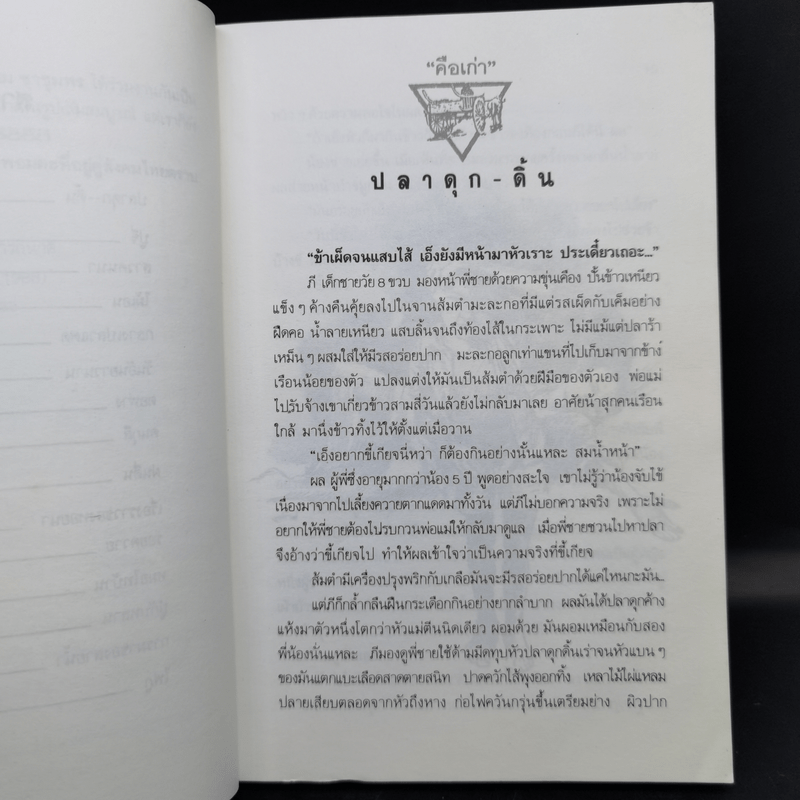 "คือเก่า"
ปลาดุก - ดิ้น
"ข้าเผ็ดจนแสบไส้ เอ็งยังมีหน้ามาหัวเราะ ประเดี๋ยวเถอะ..."
ภี เด็กชายวัย 8 ขวบ มองหน้าพี่ชายด้วยความขุ่นเคือง ปั้นข้าวเหนียว
แข็ง ๆ ค้างคืนคุ้ยลงไปในจานส้มตำมะละกอที่มีแต่รสเผ็ดกับเค็มอย่าง
ฝืดคอ น้ำลายเหนียว แสบลิ้นจนถึงท้องไส้ในกระเพาะ ไม่มีแม้แต่ปลาร้า
เหม็น ๆ ผสมใส่ให้มีรสอร่อยปาก มะละกอลูกเท่าแขนที่ไปเก็บมาจากข้าง
เรือนน้อยของตัว แปลงแต่งให้มันเป็นส้มตำด้วยฝีมือของตัวเอง พ่อแม่
ไปรับจ้างเขาเกี่ยวข้าวสามสี่วันแล้วยังไม่กลับมาเลย อาศัยน้าสุกคนเรือน
ใกล้ มานึ่งข้าวทิ้งไว้ให้ตั้งแต่เมื่อวาน
"เอ็งอยากขี้เกียจนี่หว่า ก็ต้องกินอย่างนั้นแหละ สมน้ำหน้า"
ผล ผู้พี่ซึ่งอายุมากกว่าน้อง 5 ปี พูดอย่างสะใจ เขาไม่รู้ว่าน้องจับไข้
เนื่องมาจากไปเลี้ยงควายตากแดดมาทั้งวัน แต่ภีไม่บอกความจริง เพราะไม่
อยากให้พี่ชายต้องไปรบกวนพ่อแม่ให้กลับมาดูแล เมื่อพี่ชายชวนไปหาปลา
จึงอ้างว่าขี้เกียจไป ทำให้ผลเข้าใจว่าเป็นความจริงที่ขี้เกียจ
ส้มตำมีเครื่องปรุงพริกกับเกลือมันจะมีรสอร่อยปากได้แค่ไหนกะมัน...
แต่ภีก็กล้ำกลืนฝืนกระเดือกกินอย่างยากลำบาก ผลมันได้ปลาดุกค้าง
แห้งมาตัวหนึ่งโตกว่าหัวแม่ตีนนิดเดียว ผอมด้วย มันผอมเหมือนกับสอง
พี่น้องนั่นแหละ ภีมองดูพี่ชายใช้ด้ามมีดทุบหัวปลาดุกดิ้นเร่าจนหัวแบน ๆ
ของมันแตกแบะเลือดสาดตายสนิท ปาดควักไส้พุงออกทิ้ง เหลาไม้ไผ่แหลม
ปลายเสียบตลอดจากหัวถึงหาง ก่อไฟควันกรุ่นขึ้นเตรียมย่าง ผิวปาก